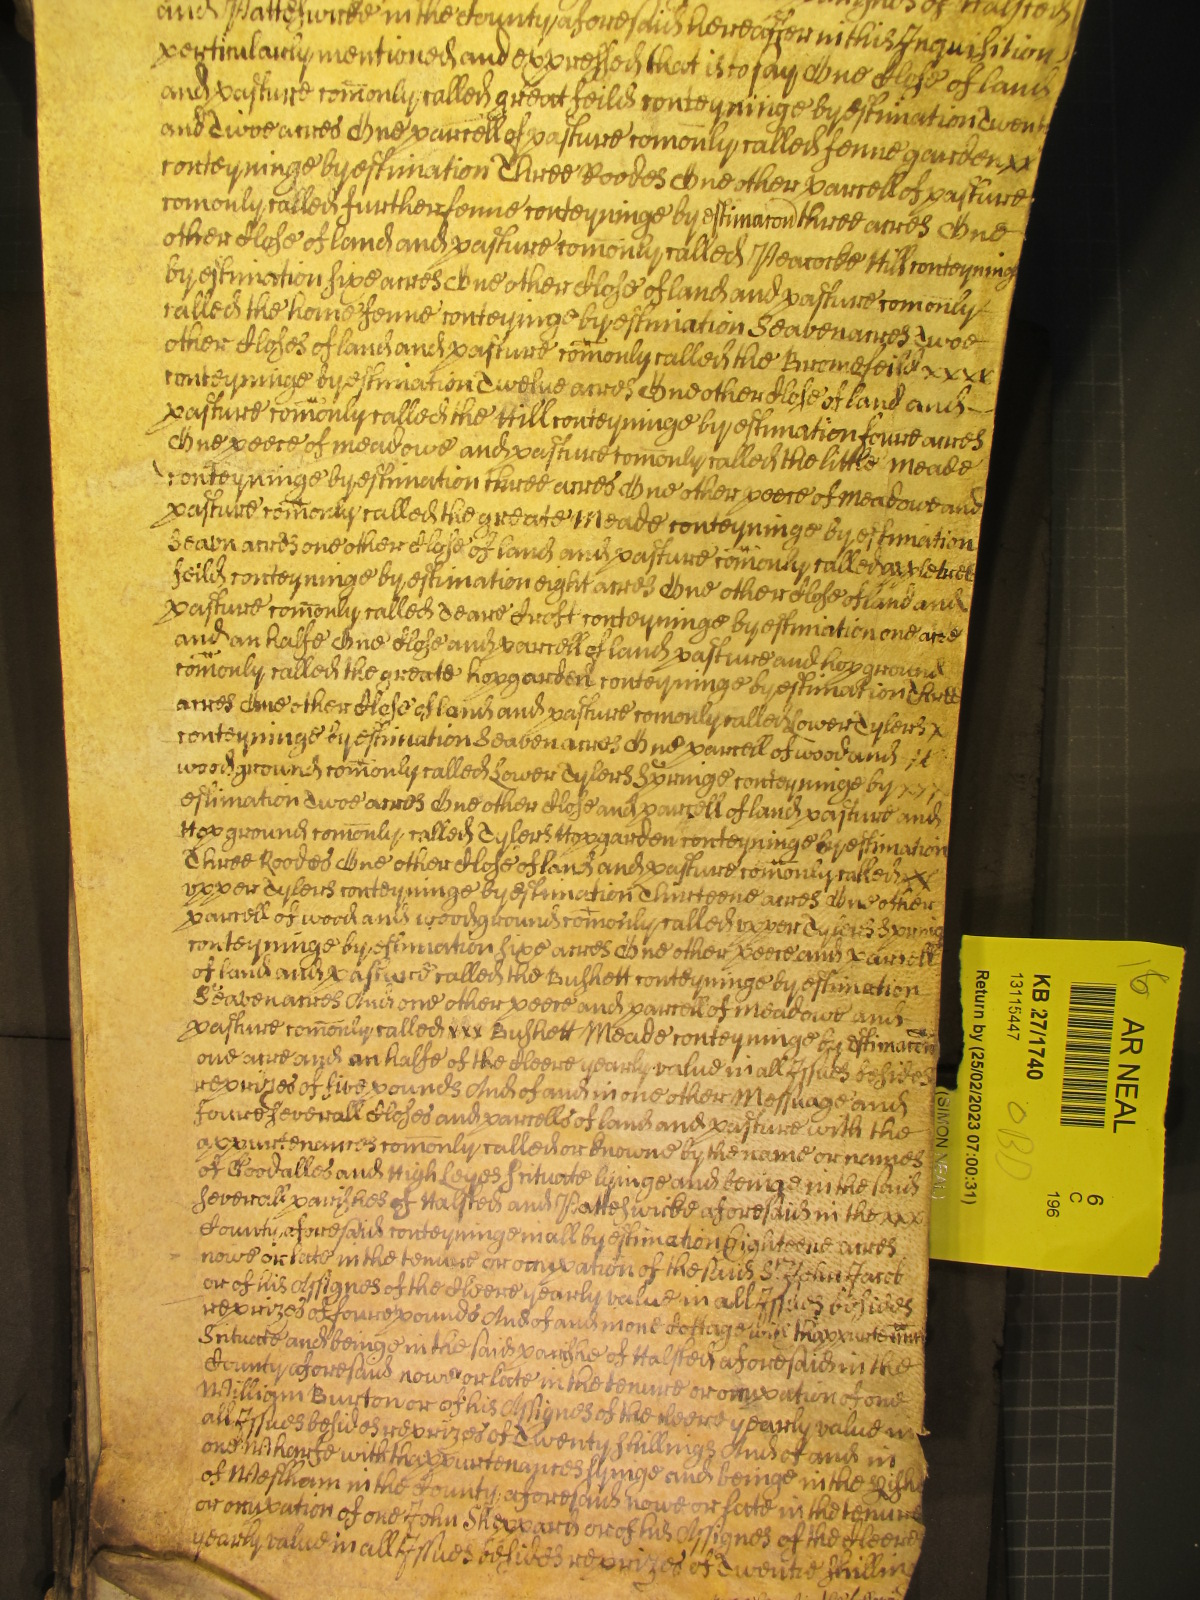 and Patteswicke in the County aforesaid hereafter in this Inquisition
perticularly mentioned and expressed that is to say One Close of land
and pasture comonly called great feild conteyninge by estimation Twent
and Twoe acres One parcell of pasture comonly called fenne garden xx
conteyninge by estimation Three Roodes One other parcell of pasture
comonly called further fenne conteyninge by estimacon three acres One
other Close of land and pasture comonly called Peacocke Hill conteyning
by estimation sixe acres One other Close of land and pasture comonly
called the home fenne conteyninge by estimation Seaven acres Twoe
other Closes of land and pasture comonly called the Bromefeild xxxx
conteyninge by estimation Twelve acres One other Close of land and
pasture comonly called the Hill conteyninge by estimation foure acres
One peece of meadowe and pasture comonly called the little Meade
conteyninge by estimation three acres One other peece of Meadowe and
pasture comonly called the greate Meade conteyninge by estimation
Seavn acres one other Close of land and pasture comonly called
feild conteyninge by estimation eight acres One other Close of land and
pasture comonly called Deare Croft conteyninge by estimation one acre
and an halfe One Close and parcell of land pasture and hopground
comonly called the greate hopgarden conteyninge by estimation Three
acres One other Close of land and pasture comonly called Lower Tylers x
conteyninge by estimation Seaven acres One parcell of wood and
woodground comonly called Lower Tylers Springe conteyninge by
estimation Twoe acres One other Close and parcell of land pasture and
Hopground comonly called Tylers Hopgarden conteyninge by estimation
Three Roodes One other Close of land and pasture comonly called xx
upper Tylers conteyninge by estimation Thirteene acres One other
parcell of wood and woodground comonly called upper Tylers Spring
conteyninge by estimation sixe acres One other peece and parcell
of land and pasture called the Bushett conteyninge by estimation
Seaven acres And one other peece and parcell of meadowe and
pasture comonly called xxx Bushett Meade conteyninge by estimacon
one acre and an halfe of the cleere yearly value in all Issues besides
reprizes of five pounds And of and in one other Messuage and
foure severall Closes and parcells of land and pasture with the
appurtenances comonly called or knowne by the name or names
of Goodalles and High Leyes scituate lyinge and beinge in the said
severall parishes of Halsted and Patteswicke aforesaid in the xxx
County aforesaid conteyninge in all by estimation Eighteene acres
nowe or late in the tenure or occupation of the said Sr. John Jacob
or of his Assignes of the cleere yearly value in all Issues besides
reprizes of foure pounds And of and in one Cottage with thappurtenn
Scituate and beinge in the said parishe of Halsted aforesaid in the
County aforesaid nowe or late in the tenure or occupation of one
William Burton or of his Assignes of the cleere yearly value in
all Issues besides reprizes of Twenty shillings And of and in
one Wharfe with thappurtenances lyinge and beinge in the
of Westham in the County aforesaid nowe or late in the tenure
or occupation of one John Sheppard or of his Assignes of the cleere
yearly value in all Issues besides reprizes of Twentie shillin
16
AR NEAL
KB 27/1740
13115447
Return by (25/02/2023 07:00:31)
(SIMON NEAL)
6
C
196